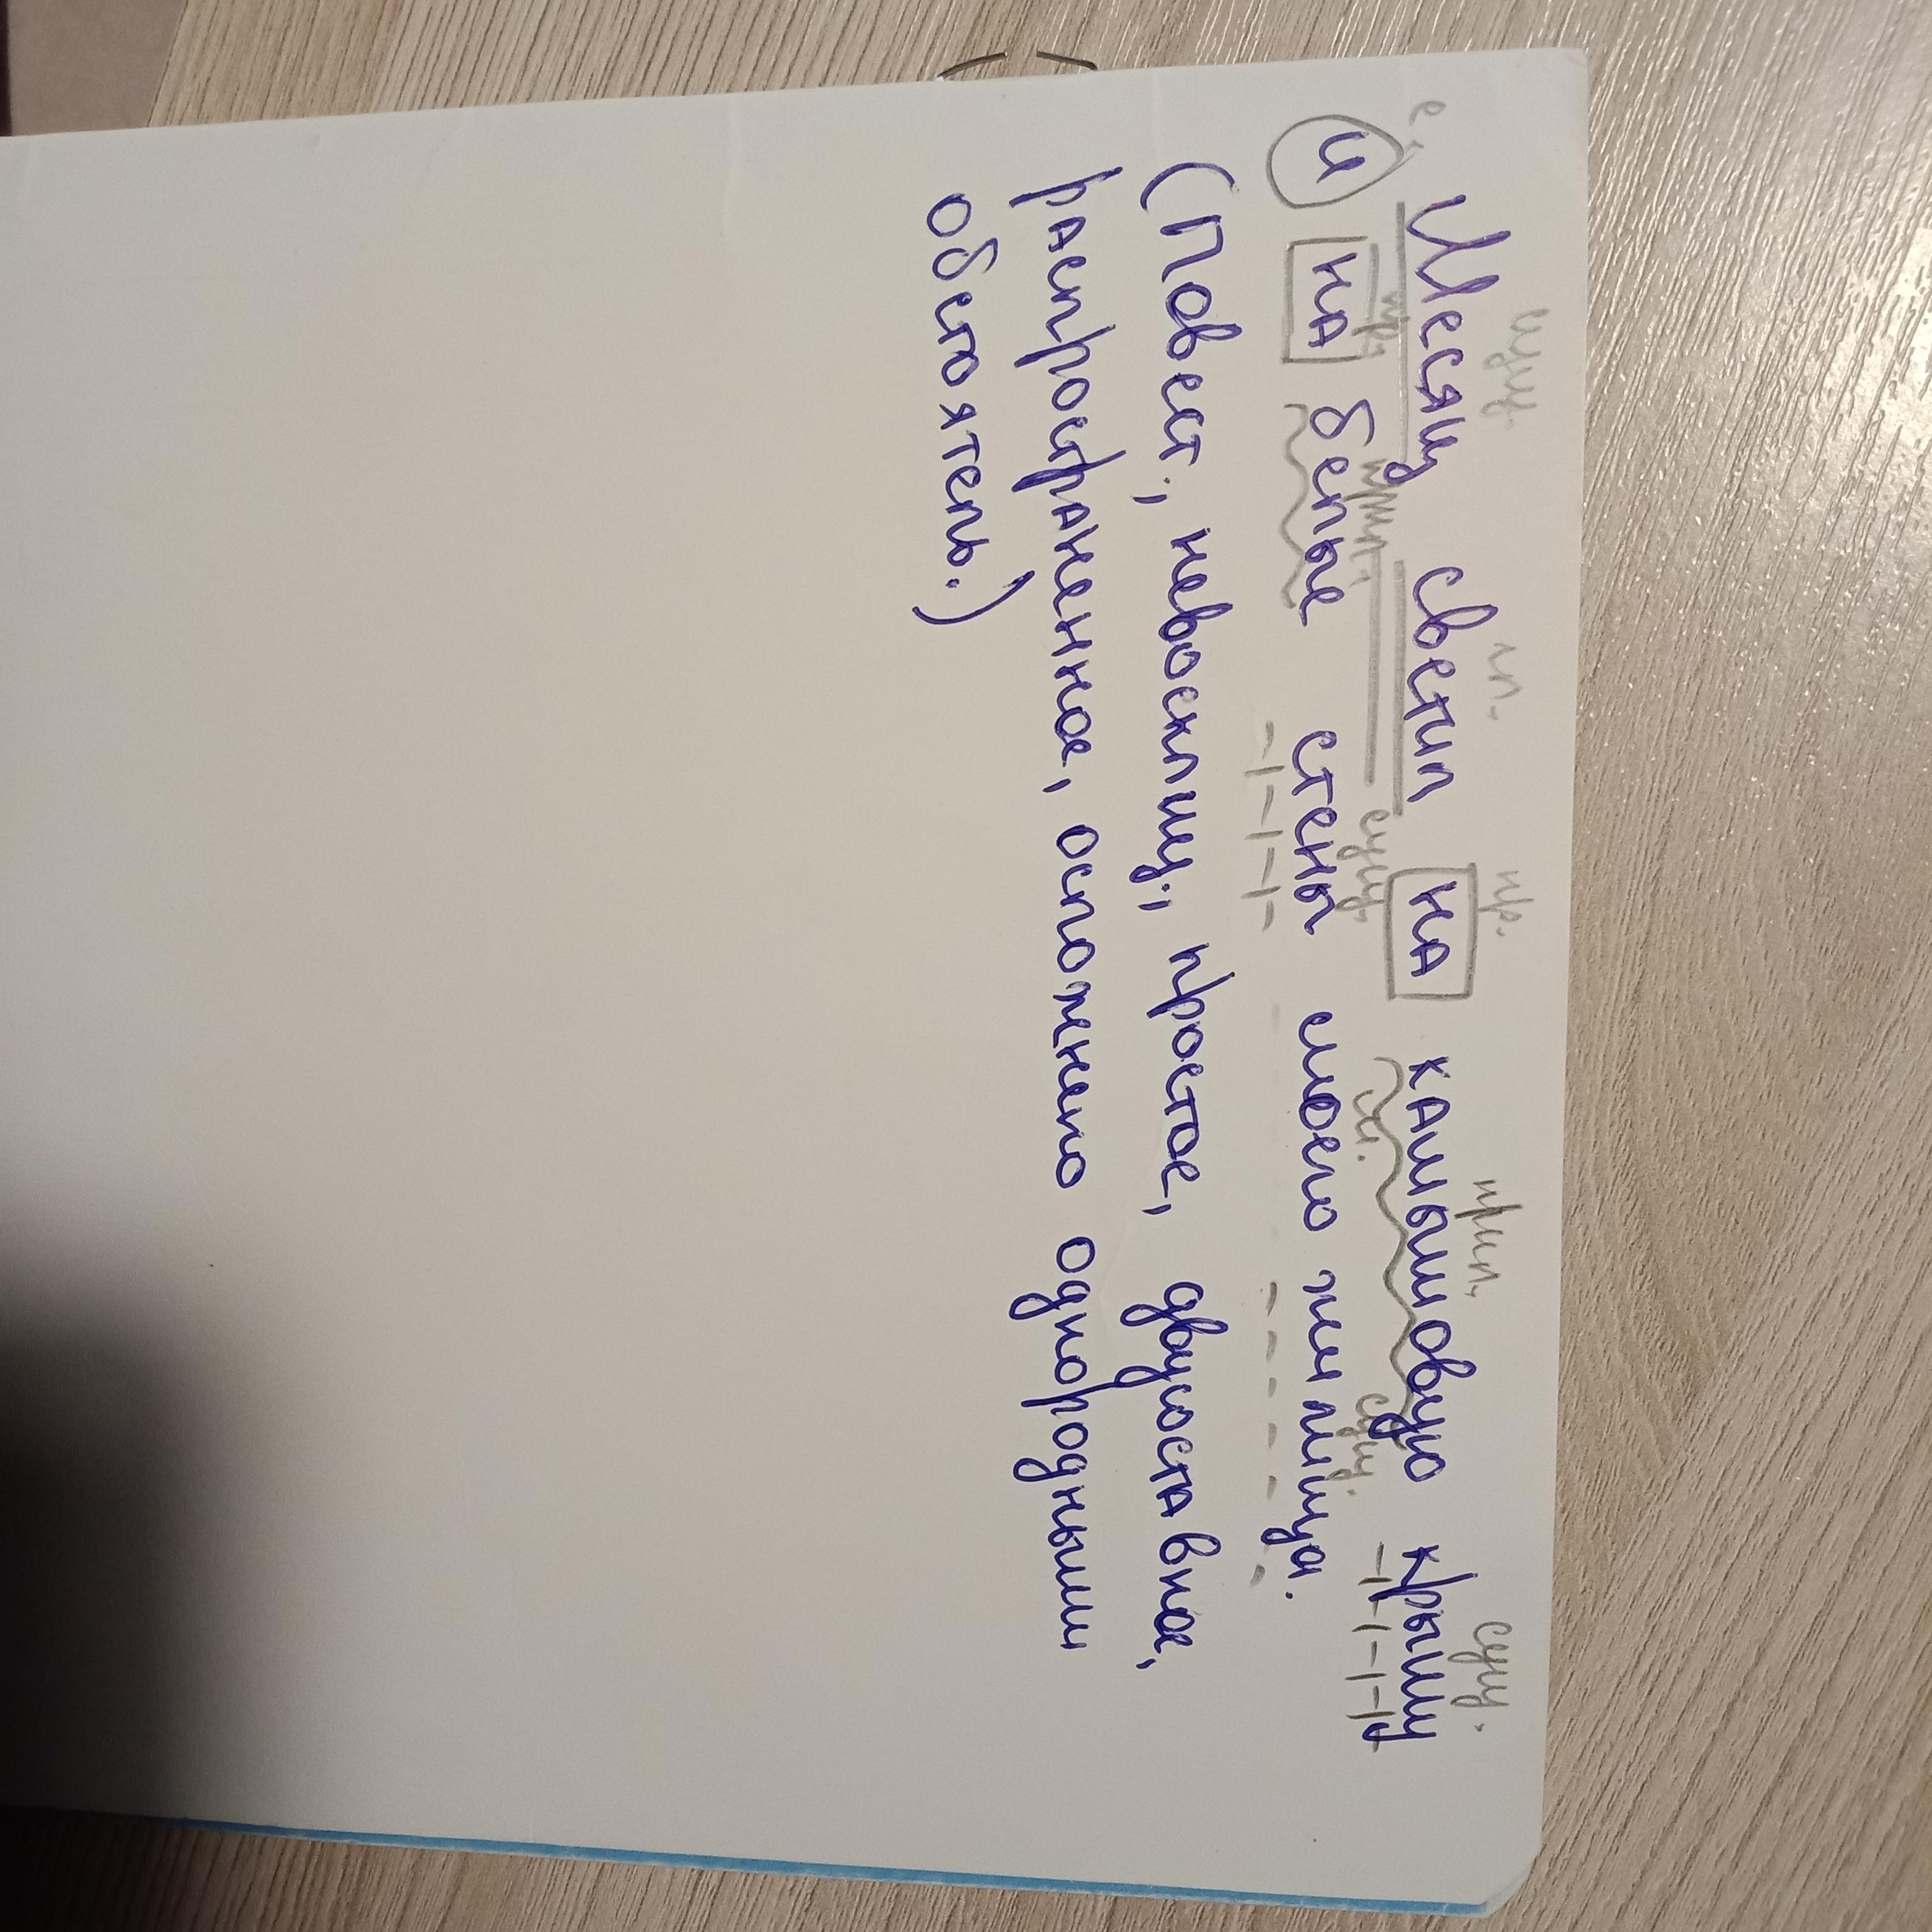 сущ. гл. пр. прил. сущ.
Месяц светил на камышовую крышу
с. пр. прил. сущ. сущ.
и на белые стены моего жилища.
(Повест., невосклиц., простое, двусоставное,
распространенное, осложнено однородными
обстоятель.)